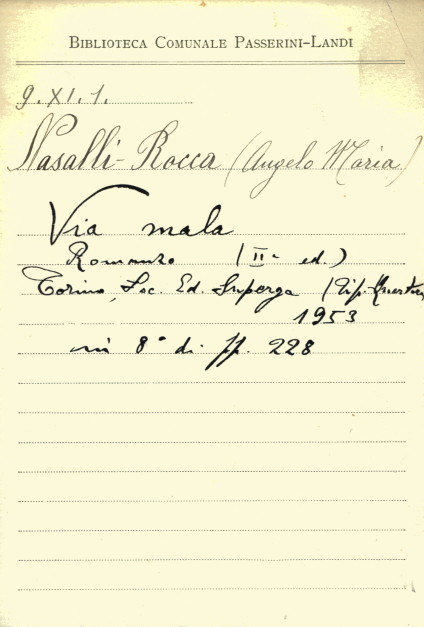 BIBLIOTECA COMUNALE PASSERINI-LANDI
9. XI. 1.
Nasalli-Rocca (Angelo Maria)
Via mala
Romanzo (IIa ed.)
Torino, Soc. Ed. Superga (Tip.
1953
in 8° di pp. 228